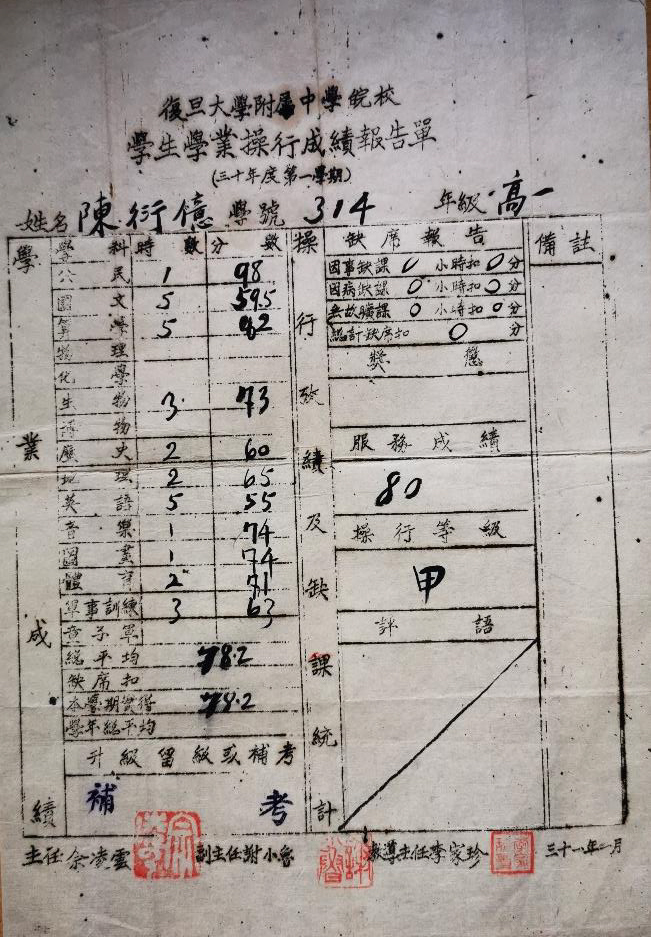 復旦大學附屬中學皖校
學生學業操行成績報告單
(三十年度第一學期)
姓名 陳衍億 學號 314 年級 高一
學業成績
學科 時數 分數
公民 1 98
國文 5 59.5
算學 5 82
物理
化學
生物 3 73
博物
歷史 2 60
地理 2 65
英語 5 55
音樂 1 74
圖畫 1 74
體育 2 71
軍事訓練 3 63
童子軍
總平均 78.2
缺席扣
本學期實得 78.2
學年總平均
升級留級或補考
補考
操行成績及缺課統計
缺席報告
因事缺課 0 小時扣 0 分
因病缺課 0 小時扣 0 分
無故曠課 0 小時扣 0 分
總計缺席扣 0 分
獎懲
服務成績
80
操行等級
甲
評語
備註
主任 余凌雲 副主任 謝小魯 教導主任 李家珍 三十一年一月